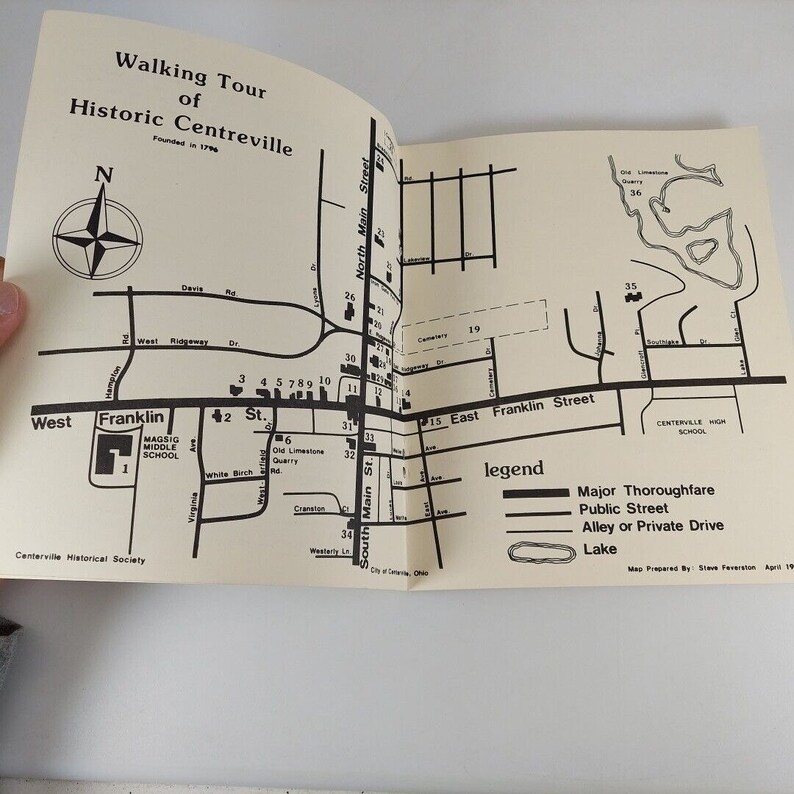 Walking Tour
of
Historic Centreville
Founded in 1796
N
North Main Street
24
Rd.
Old Limestone
Quarry
36
23
Lakeview Dr.
Lyons Dr
22
35
Davis Rd
26
21
20
Cemetery 19
Johanna Dr
Glencroft Pl
Southlake Dr.
Glen Ct
Lake
Hampton Rd.
West Ridgeway Dr.
27
18
Ridgeway Dr.
Cemetery
30
28
29
17
16
3
4
5
7
8
9
10
11
12
14
West Franklin St.
East Franklin Street
2
15
31
13
CENTERVILLE HIGH
SCHOOL
1
MAGSIG
MIDDLE
SCHOOL
6
Old Limestone
Quarry
Rd.
32
33
Ave.
White Birch
Westerfield Dr.
Virginia Ave.
Cranston Ct
East Ave.
Ave.
South Main St.
34
Westerly Ln.
legend
Major Thoroughfare
Public Street
Alley or Private Drive
Lake
Centerville Historical Society
City of Centerville, Ohio
Map Prepared By: Steve Feverston April 19